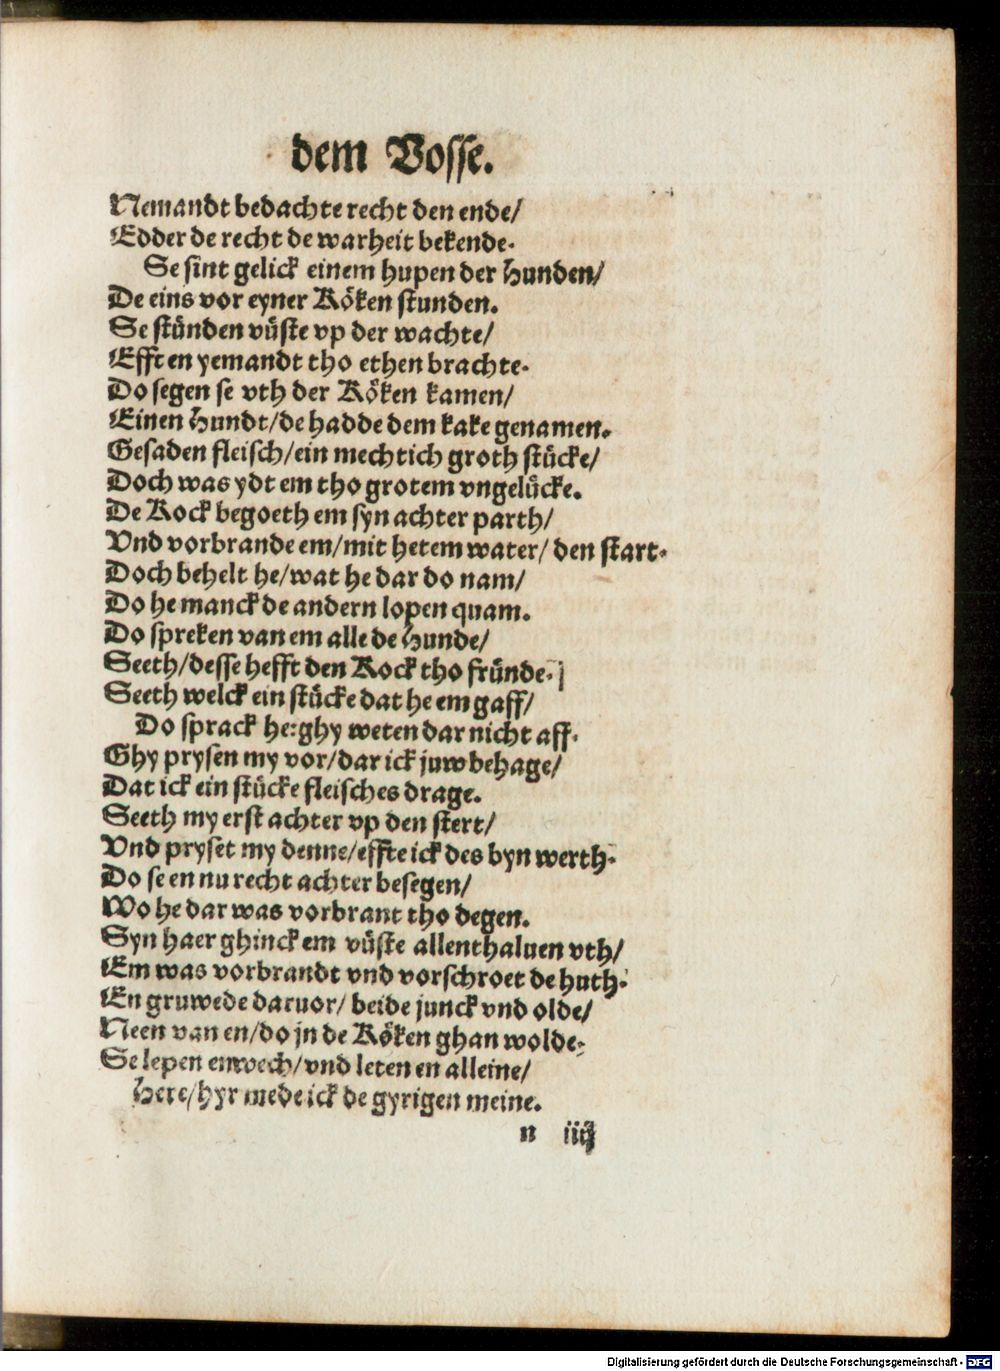 dem Vosse.
Nemandt bedachte recht den ende/
Edder de recht de warheit bekende.
Se sint gelick einem hupen der Hunden/
De eins vor eyner Köken stunden.
Se stünden vüste vp der wachte/
Efft en yemandt tho ethen brachte.
Do segen se vth der Köken kamen/
Einen Hundt/de hadde dem kake genamen.
Gesaden fleisch/ein mechtich groth stücke/
Doch was ydt em tho grotem vngelücke.
De Kock begoeth em syn achter parth/
Vnd vorbrande em/mit hetem water/ den start.
Doch behelt he/wat he dar do nam/
Do he manck de andern lopen quam.
Do spreken van em alle de Hunde/
Seeth/desse hefft den Kock tho fründe.
Seeth welck ein stücke dat he em gaff/
Do sprack he:ghy weten dar nicht aff.
Ghy prysen my vor/dar ick juw behage/
Dat ick ein stücke fleisches drage.
Seeth my erst achter vp den stert/
Vnd pryset my denne/effte ick des byn werth.
Do se en nu recht achter besegen/
Wo he dar was vorbrant tho degen.
Syn haer ghinck em vüste allenthaluen vth/
Em was vorbrandt vnd vorschroet de huth.
En gruwede daruor/ beide junck vnd olde/
Neen van en/do jn de Köken ghan wolde.
Se lepen enwech/vnd leten en alleine/
Here/hyr mede ick de gyrigen meine.
n iiij
Digitalisierung gefördert durch die Deutsche Forschungsgemeinschaft - DFG